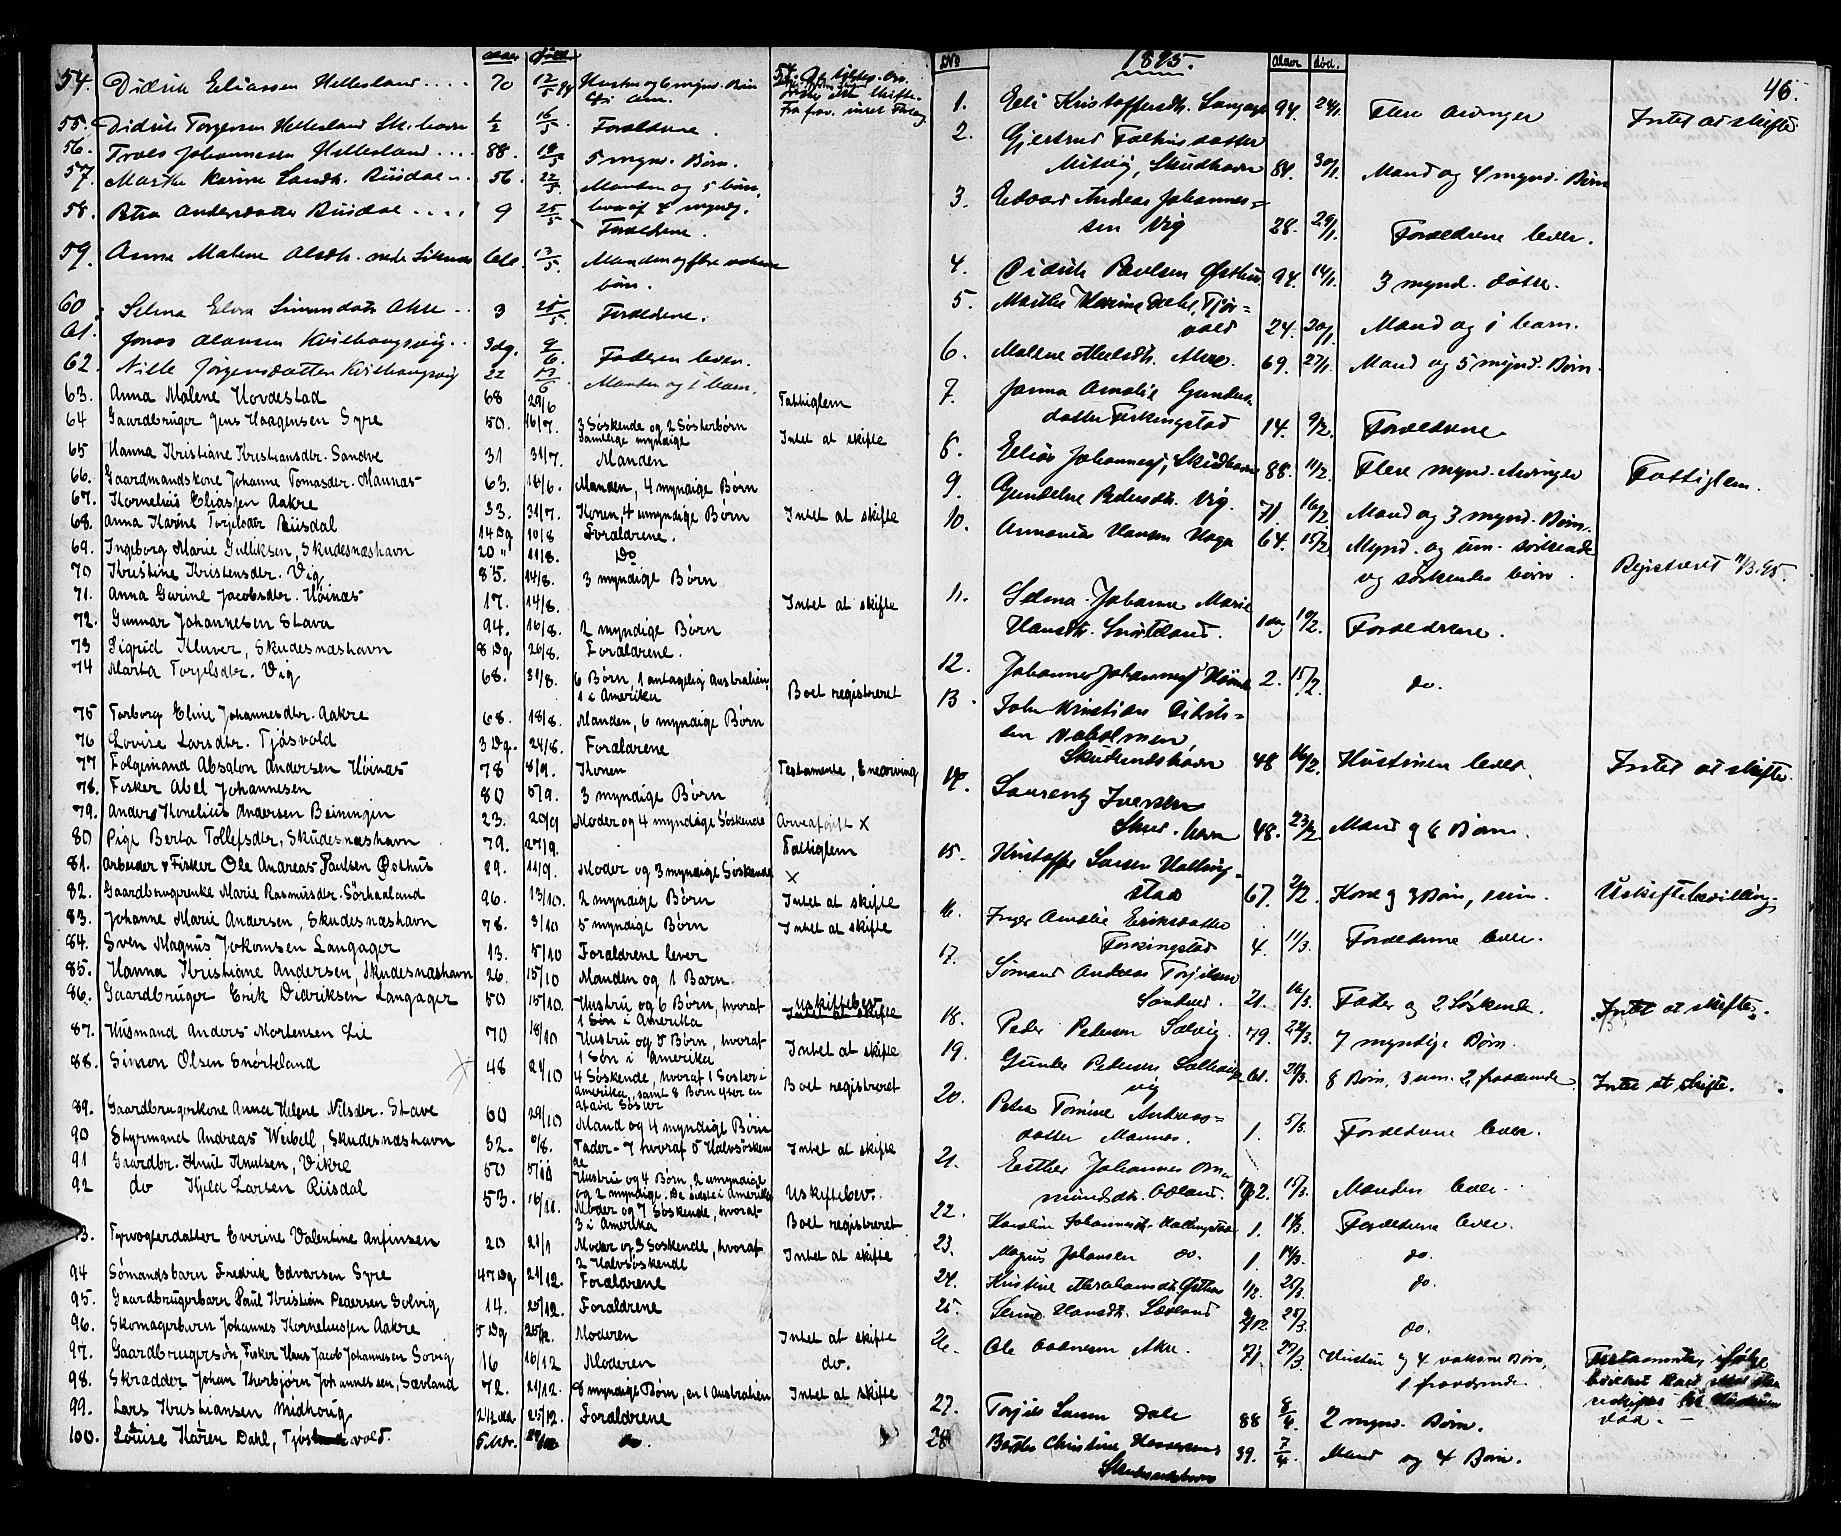 alder død.
54. Didrik Eliassen Hellesland .... 70 12/5 94
55. Didrik Torgersen Hellesland Sk.havn 1/2 16/5 Forældrene.
56. Troels Johannessen Hellesland .... 88. 19/5 5 mynd. Børn.
57. Marthe Karine Riisdal 56. 22/5 Manden og 5 børn,
hvoraf 4 myndg.
58. Andersdatter Riisdal .... 9 25/5 Forældrene.
59. Anna Malene 13/5 Manden og flere voksne
børn.
60. Selma Elvra Akre .. 3 25/5 Forældrene.
61. Jonas Olausen Kvilhaugsvig .. 3 dg. 9/6 Faderen lever.
62 Nille Jørgensdatter Kvilhaugsvig 22 17/6 Manden og 1 barn.
63. Anna Malene Hovdestad 68 29/6 Fattiglem
64 Gaardbruger Jens Haagensen Syre 50. 16/7. 3 Søskende og 2 Søsterbørn
samtlige myndige Intet at skifte
65 Hanna Kristiane Kristiansdtr. Sandve 31 31/7. Manden
66. Gaardmandskone Johanne Tomasdtr. Mannas 63. 16/6. Manden, 4 myndige Børn
67. Kornelius Eliassen Aakre 33. 31/7. Konen, 4 umyndige Børn Intet at skifte
68. Anna Karine Torjelsdr Riisdal 14 Dg 10/8 Forældrene.
69. Ingeborg Marie Gulliksen, Skudesnæshavn 20 " 11/8. Do
70 Kristine Kristensdtr. Vig 85. 14/8. 3 myndige Børn
71. Anna Gurine Jacobsdtr. Høinæs 17. 14/8. Intet at skifte
72. Gunnar Johannesen Stava 94. 16/8. 2 myndige Børn
73 Sigrid Kluver, Skudesnæshavn 8 Dg. 26/8. Forældrene.
74 Marta Torjelsdtr. Vig 68. 31/8. 6 Børn, 1 antagelig Australien,
1 i Amerika Boet registreret
75 Torborg Eline Johannesdtr. Aakre 68. 18/8. Manden, 6 myndige Børn
76 Lovise Larsdtr. Tjøsvold 3 Dg. 24/8. Forældrene
77 Folgemand Absalon Andersen Høinæs 78 8/9. Konen Testamente,
78. Fisker Abel Johannesen 80 5/9. 3 myndige Børn
79. Anders Konelius Andersen Beiningen 23. 20/9 Moder og 4 myndige Søskende Arveafgift X
80 Pige Berta Tollefsdtr, Skudesnæshavn 79. 27/9. Fattiglem
81. Arbeider & Fisker Ole Andreas Paulsen Østhus 29. 11/9. Moder og 3 myndige Søskende X
82. Gaardbrugerenke Marie Rasmusdtr. Sørhaaland 96. 13/10. 2 myndige Børn Intet at skifte
83. Johanne Marie Andersen, Skudesnæshavn 78. 3/10 5 myndige Børn Intet at skifte
84. Sven Magnus Jokomsen Langager 13. 5/10 Forældrene lever
85. Hanna Kristiane Andersen, Skudesnæshavn 26. 15/10 Manden og 1 Barn.
86. Gaardbruger Erik Didriksen Langager 50 15/10. Hustru og 6 Børn, hvoraf
1 Søn i Amerika Uskiftebev.
Intet at skifte
87. Husmand Anders Mortensen Lie 70 18/10 Hustru og 5 Børn, hvoraf
1 Søn i Amerika Intet at skifte
88. Simon Olsen Snørteland 48 21/10 4 Søskende, hvoraf 1 Søster i
Amerika, samt 8 Børn efter en
afdød Søster Boet registreret
89. Gaardbrugerkone Anna Helene Nilsdtr. Stave 60 29/10 Mand og 4 myndige Børn
90 Styrmand Andreas Weibell, Skudesnæshavn 32. Fader - 7 hvoraf 5 Halvsøskende Intet at skifte
91 Gaardbr. Knut Knutsen, Vikre 50 Hustru og 4 Børn, 2 umyndige
og 2 myndige. De sidste i Amerika Uskiftebev.
92 do Kjeld Larsen Riisdal 53. 16/11. Moder og 7 Søskende, hvoraf
3 i Amerika Boet registreret
93. Fyrvogterdatter Everine Valentine Anfinsen 20 21/1 Moder og 3 Søskende, hvoraf
2 Halvsøskende Intet at skifte
94 Sømandsbarn Fredrik Edvarsen Syre 47 Dg. 21/12. Forældrene
95. Gaardbrugerbarn Paul Kristian Pedersen Solvig 14. 25/12. Forældrene
96. Skomagerbarn Johannes Korneliussen Aakre 5 Dg 25/12. Moderen Intet at skifte
97. Gaardbrugersøn, Fisker Hans Jacob Johannesen Sovig 16 16/12 Moderen do.
98. Skrædder Johan Thorbjørn Johannessen, Sævland 72. 21/12. 8 myndige Børn, en i Australien Intet at skifte
99. Lars Kristiansen Midhoug 25/12. Forældrene
100. Lovise Karen Dahl, Tjøsvold. 5 Mdr. do.
46.
No 1895. Alder død.
1. Eli Kristoffersdtr. Langage 94. 24/1. Flere Arvinger Intet at skifte
2. Gjertrud Folkmsdatter
Milvig, Skudhavn 84. 30/1. Mand og 4 mynd. Børn
3. Edvard Andreas Johannes=
sen Vig 28. 29/1. Forældrene lever.
4. Didrik Paulsen Østhus 94. 14/1. 3 mynd. døtre.
5. Marthe Karine Dahl, Tjøs=
vold 24. 20/1. Mand og 1 barn.
6. Malene Akre. 69. 27/1. Mand og 5 mynd. Børn.
7. Janna Amalie Gunders
datter Ferkingstad 14. 9/2. Forældrene
8. Elias Johanness, Skudhavn 88. 11/2. Flere mynd. Arvinger Fattiglem.
9. Gundeline Pedersdtr. Vig. 71. 16/2. Mand og 3 mynd. Børn.
10. Ananias Hansen Haga 64. 15/2 Mynd. og um. søskende
og søskendes børn. Registreret 11/3.95.
11. Selma Johanne Marie
Hansdtr. Snørteland. 1 dg 10/2. Forældrene.
12. Johannes Johanness 2. 15/2. do.
13. John Kristian Didrik=
sen Vaholmen
Skudesneshavn 48 16/2. Hustruen lever. Intet at skifte.
14. Laurentz Iversen
Skud.havn 48. 23/2 Mand og 6 Børn.
15. Kristoffer Larsen Hallsig=
stad 67. 2/2. Kone og 3 Børn, Uskiftebevilling.
16. Inger Amalie Eriksdatter
Ferkingstad 4. 11/3. Forældrene lever.
17. Sømand Andreas Torjelsen
Sandved. 21. 16/3. Fader og 2 Søskende. Intet at skifte.
18. Peder Pedersen Solvig. 79. 22/3. 7 myndige Børn.
19. Gunder Pedersen
vig 61. 21/3. 8 Børn, 3 um. Intet at skifte.
20. Petra Tomine Andreas=
datter Mannes. 1. 5/3. Forældrene lever.
21. Esther Johannes
15/3. Manden lever.
22. Karoline Johannesdtr. 1. Forældrene lever.
23. Magnus Johansen do. 1. 14/3. do.
24. Kristine Abrahamsdtr. 1/2. 25/3. do
25. Hansdtr. Sævland 9/12. 25/3. do.
26. Ole Akre. 71. 27/3. Hustru og 4 voksne Børn,
1 fraværende
27. Torjus Larsen Dale 88 8/4. 2 mynd. Børn.
28 Berthe Christine
Skudesneshavn 39. 7/4. Mand og 4 Børn.